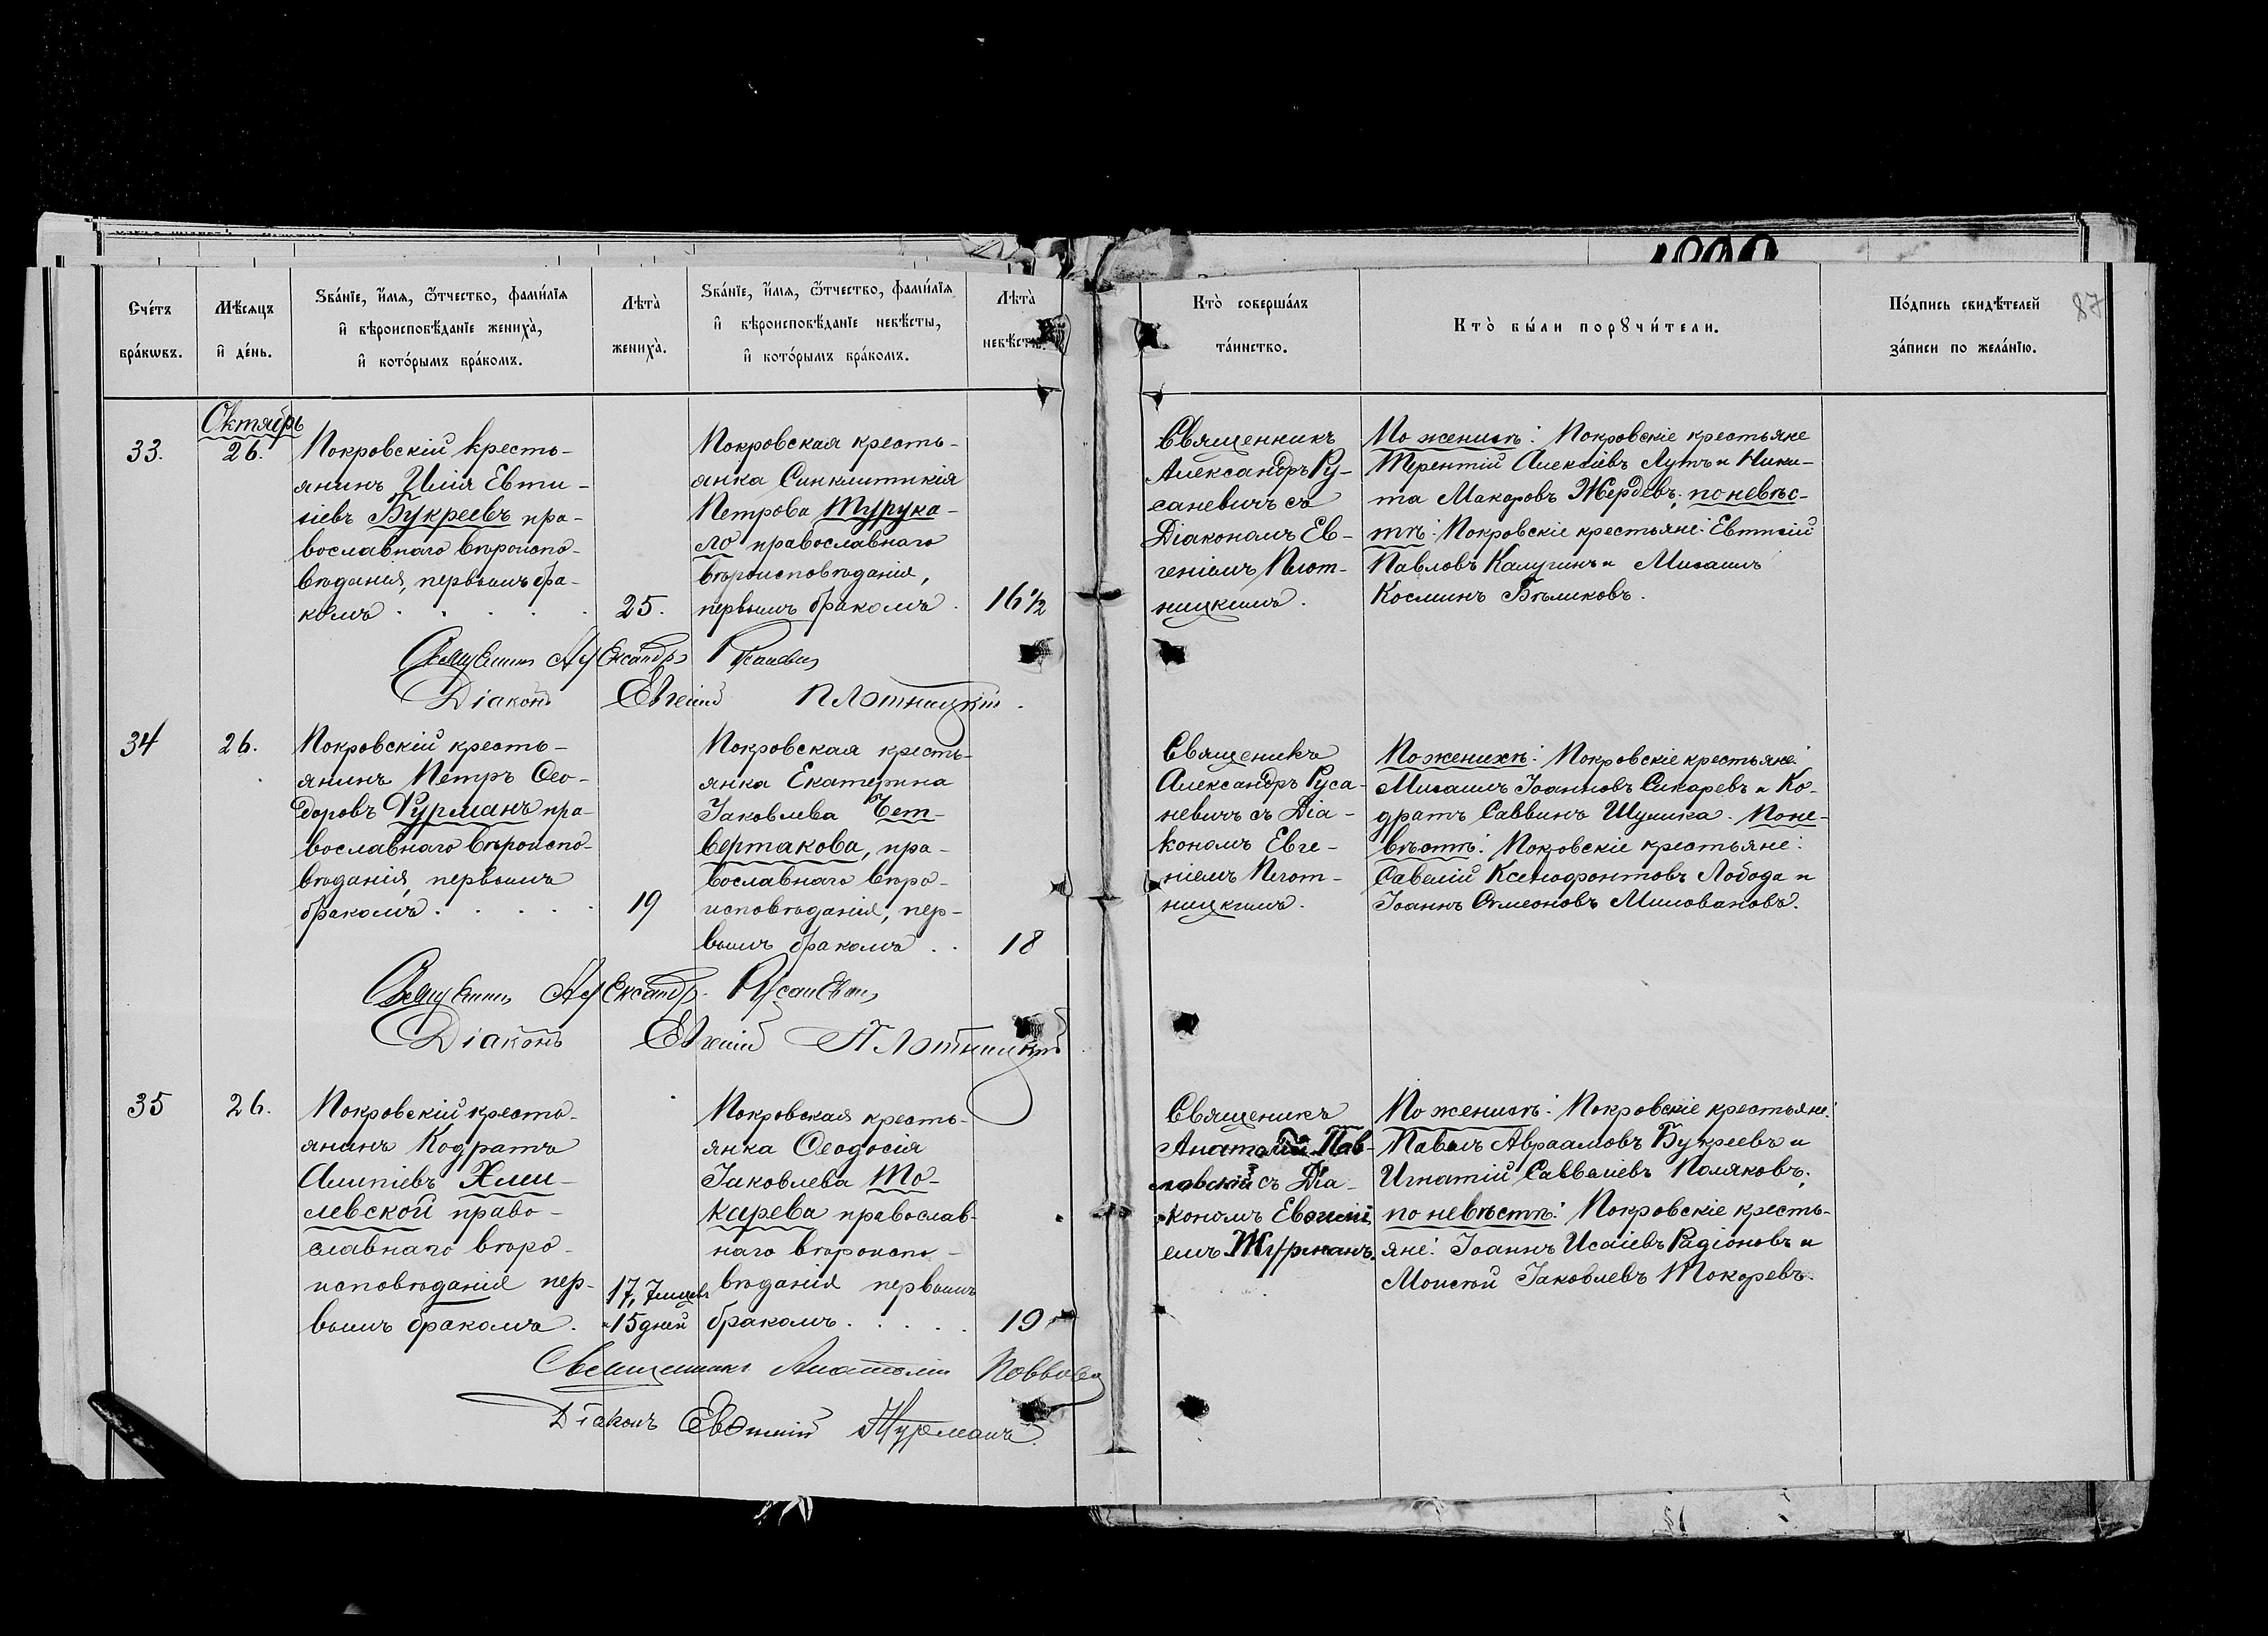 Счетъ браковъ.
Мѣсяцъ и день.
Званіе, имя, отчество, фамилія
и вѣроисповѣданіе жениха,
и которымъ бракомъ.
Лѣта жениха.
Званіе, имя, отчество, фамилія
и вѣроисповѣданіе невѣсты,
и которымъ бракомъ.
Лѣта невѣсты.
Кто совершалъ таинство.
Кто были поручители.
Подпись свидѣтелей
записи по желанію.
87
33.
Октябрь
26.
Покровскій кресть-
янинъ Илія Евти-
хіевъ Букреевъ пра-
вославнаго вѣроиспо-
вѣданія, первымъ бра-
комъ
25.
Покровская кресть-
янка Синклитикія
Петрова Турука-
ло православнаго
вѣроисповѣданія,
первымъ бракомъ.
16½
Священникъ
Александръ Ру-
саневичъ съ
Діакономъ Ев-
геніемъ Плот-
ницкимъ.
По женихѣ: Покровскіе крестьяне
Терентій Алексіевъ Лутъ и Ники-
та Макаровъ Жердевъ; по невѣс-
тѣ: Покровскіе крестьяне: Евтихій
Павловъ Калугинъ и Михаилъ
Косминъ Бѣликовъ.
Священникъ Александръ Русаневичъ
Діаконъ Евгеній Плотницкій.
34
26.
Покровскій кресть-
янинъ Петръ Ѳео-
доровъ Фурманъ пра-
вославнаго вѣроиспо-
вѣданія, первымъ
бракомъ.
19
Покровская кресть-
янка Екатерина
Іаковлева Чет-
вертакова, пра-
вославнаго вѣро-
исповѣданія, пер-
вымъ бракомъ
18
Священикъ
Александръ Руса-
невичъ съ Діа-
кономъ Евге-
ніемъ Плот-
ницкимъ.
По женихѣ: Покровскіе крестьяне:
Михаилъ Іоанновъ Сикаревъ и Ко-
дратъ Саввинъ Шулика. По не-
вѣстѣ: Покровскіе крестьяне:
Савелій Ксенофонтовъ Лобода и
Іоаннъ Симеоновъ Миловановъ.
Священникъ Александръ Русаневичъ
Діаконъ Евгеній Плотницкій
35
26.
Покровскій кресть-
янинъ Кодратъ
Алипіевъ Хми-
левской право-
славнаго вѣро-
исповѣданія пер-
вымъ бракомъ.
17, 7 мцевъ
и 15 дней
Покровская кресть-
янка Ѳеодосія
Іаковлева То-
карева православ-
наго вѣроиспо-
вѣданія первымъ
бракомъ.
19
Священикъ
Анатолій Пав-
ловскій съ Діа-
кономъ Евѳимі-
емъ Журманъ.
По женихѣ: Покровскіе крестьяне:
Павелъ Авраамовъ Букреевъ и
Игнатій Савваліевъ Поляковъ;
по невѣстѣ: Покровскіе кресть-
яне: Іоаннъ Исаіевъ Радіоновъ и
Моисей Іаковлевъ Токаревъ.
Священникъ Анатолій
Діаконъ Евѳимій Журманъ.